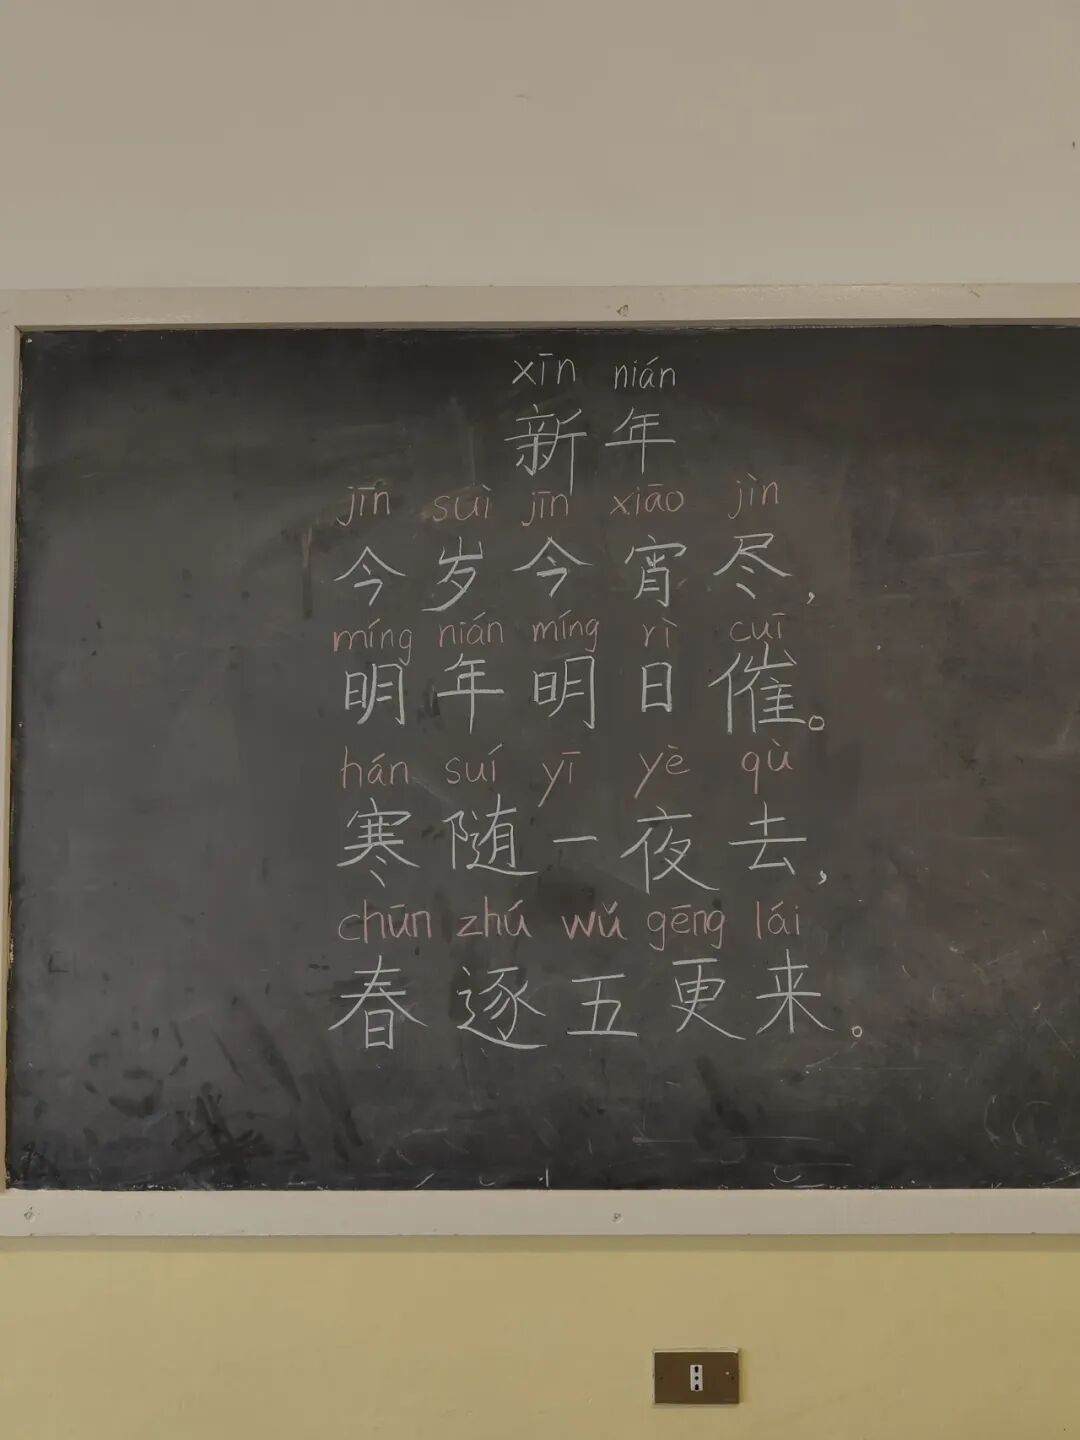 xīn nián
新年
jīn suì jīn xiāo jìn
今岁今宵尽，
míng nián míng rì cuī
明年明日催。
hán suí yī yè qù
寒随一夜去，
chūn zhú wǔ gēng lái
春逐五更来。